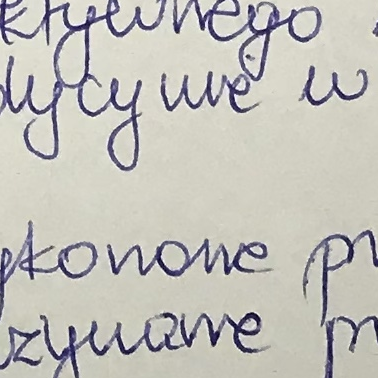 ktywnego
dycynie w
ykonone pr
zynane p